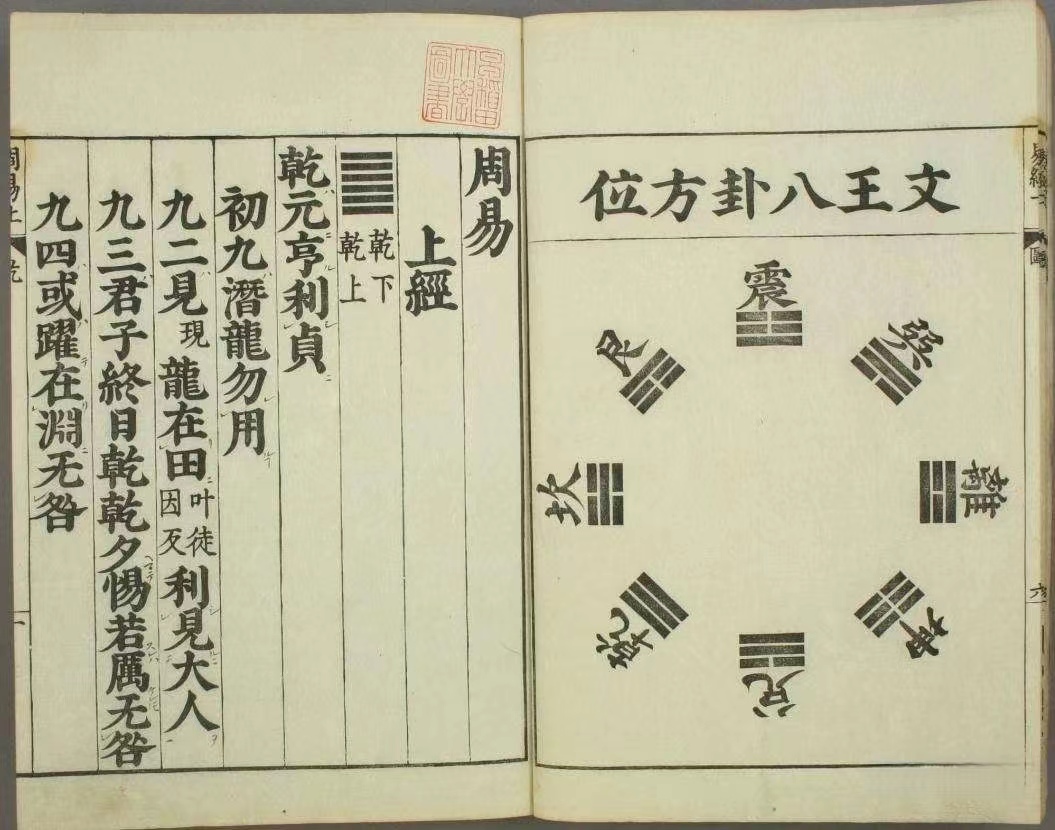 文王八卦方位
震
巽
離
坤
兌
乾
坎
艮
早稻田
大學
圖書
周易
上經
乾下
乾上
乾元亨利貞
初九潛龍勿用
九二見現龍在田叶徒因反利見大人
九三君子終日乾乾夕惕若厲无咎
九四或躍在淵无咎
周易上
乾
一